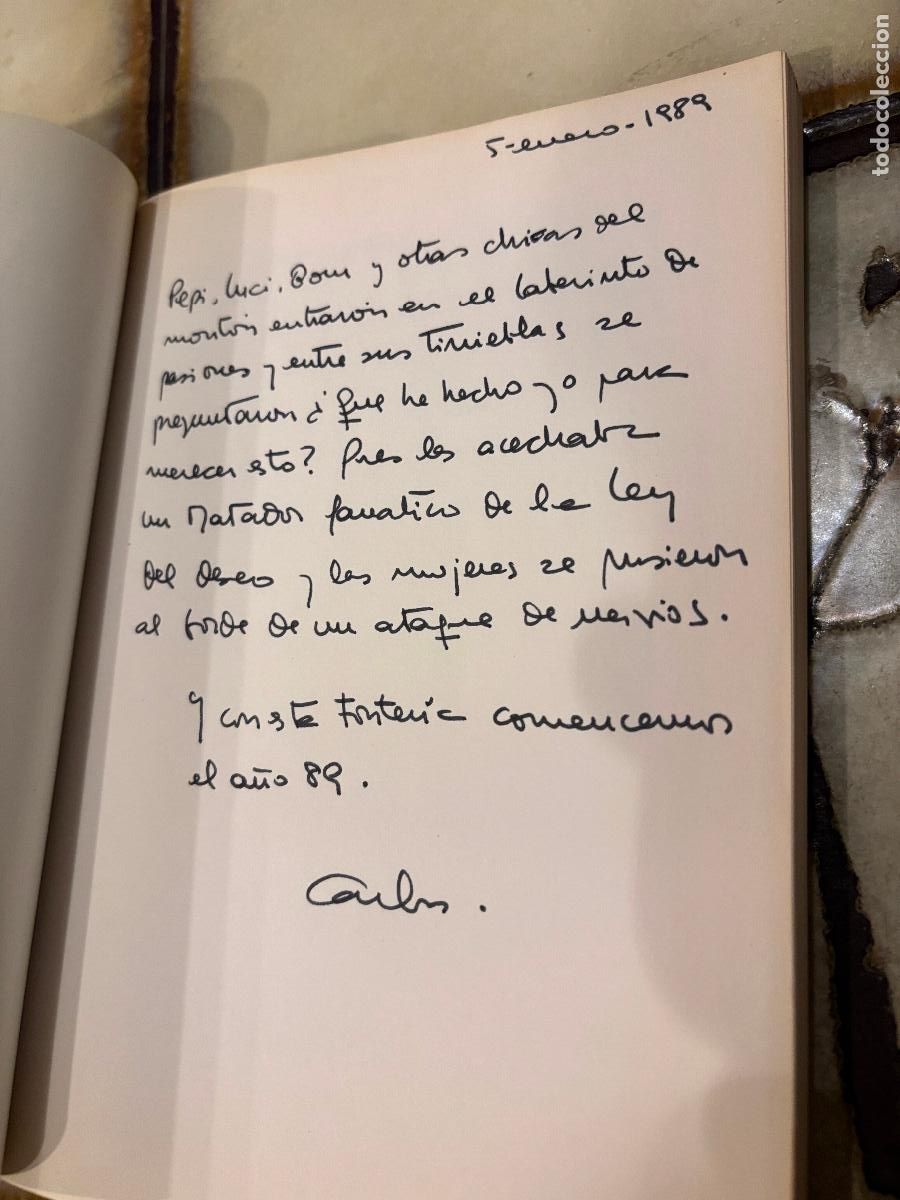 5-enero-1989
Pepi, Luci, Bom y otras chicas del
montón entraron en el laberinto de
pasiones y entre sus Tinieblas se
preguntaron ¿Que he hecho yo para
merecer esto? Pues les acechaba
un Matador fanatico de la Ley
del deseo y las mujeres se pusieron
al borde de un ataque de nervios.
Y con esta tonteria comencemos
el año 89.
Carlos.
todocoleccion